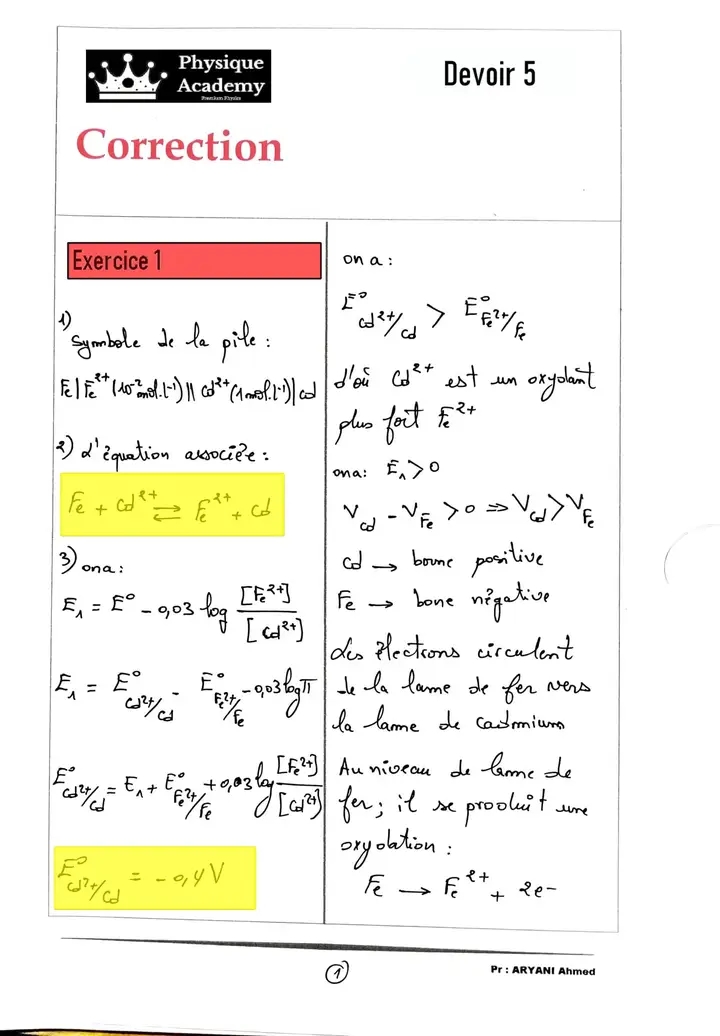 Physique
Academy
Premium Physics
Devoir 5
Correction
Exercice 1
1)
Symbole de la pile :
Fe | Fe²⁺ (10⁻² mol.L⁻¹) || Cd²⁺ (1 mol.L⁻¹) | cd
2) L'équation associée :
Fe + Cd²⁺ ⇌ Fe²⁺ + Cd
3) on a :
E₁ = E° - 0,03 log [Fe²⁺]/[Cd²⁺]
E₁ = E°Cd²⁺/Cd - E°Fe²⁺/Fe - 0,03 log π
E°Cd²⁺/Cd = E₁ + E°Fe²⁺/Fe + 0,03 log [Fe²⁺]/[Cd²⁺]
E°Cd²⁺/Cd = - 0,4 V
on a :
E°Cd²⁺/Cd > E°Fe²⁺/Fe
d'où Cd²⁺ est un oxydant
plus fort Fe²⁺
on a : E₁ > 0
Vcd - VFe > 0 ⇒ Vcd > VFe
Cd → borne positive
Fe → bone négative
Les électrons circulent
de la lame de fer vers
la lame de cadmium
Au niveau de lame de
fer ; il se produit une
oxydation :
Fe → Fe²⁺ + 2e-
1
Pr : ARYANI Ahmed